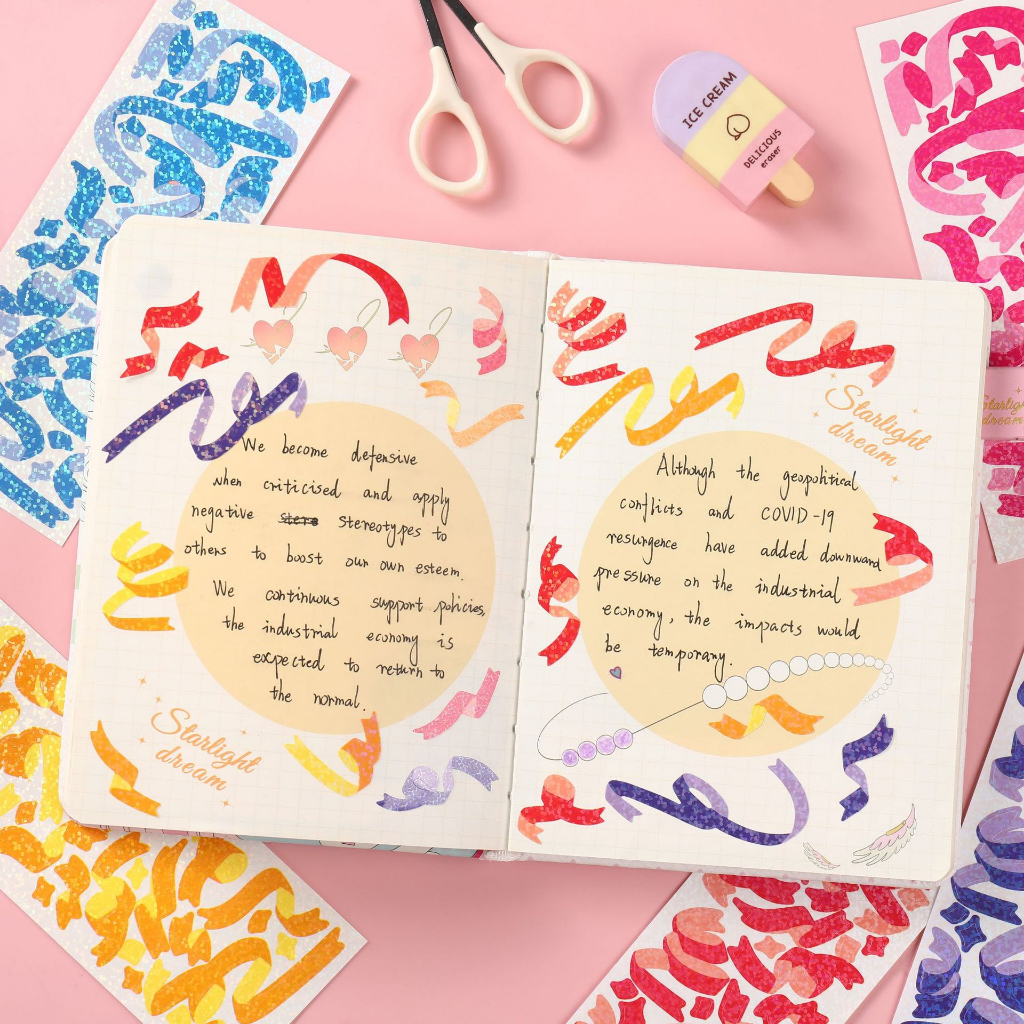 ICE CREAM
DELICIOUS
eraser
We become defensive
when criticised and apply
negative stere stereotypes to
others to boost our own esteem.
We continuous support policies,
the industrial economy is
expected to return to
the normal.
Starlight
dream
Starlight
dream
Although the geopolitical
conflicts and COVID-19
resurgence have added downward
pressure on the industrial
economy, the impacts would
be temporary.
Starlight
dream